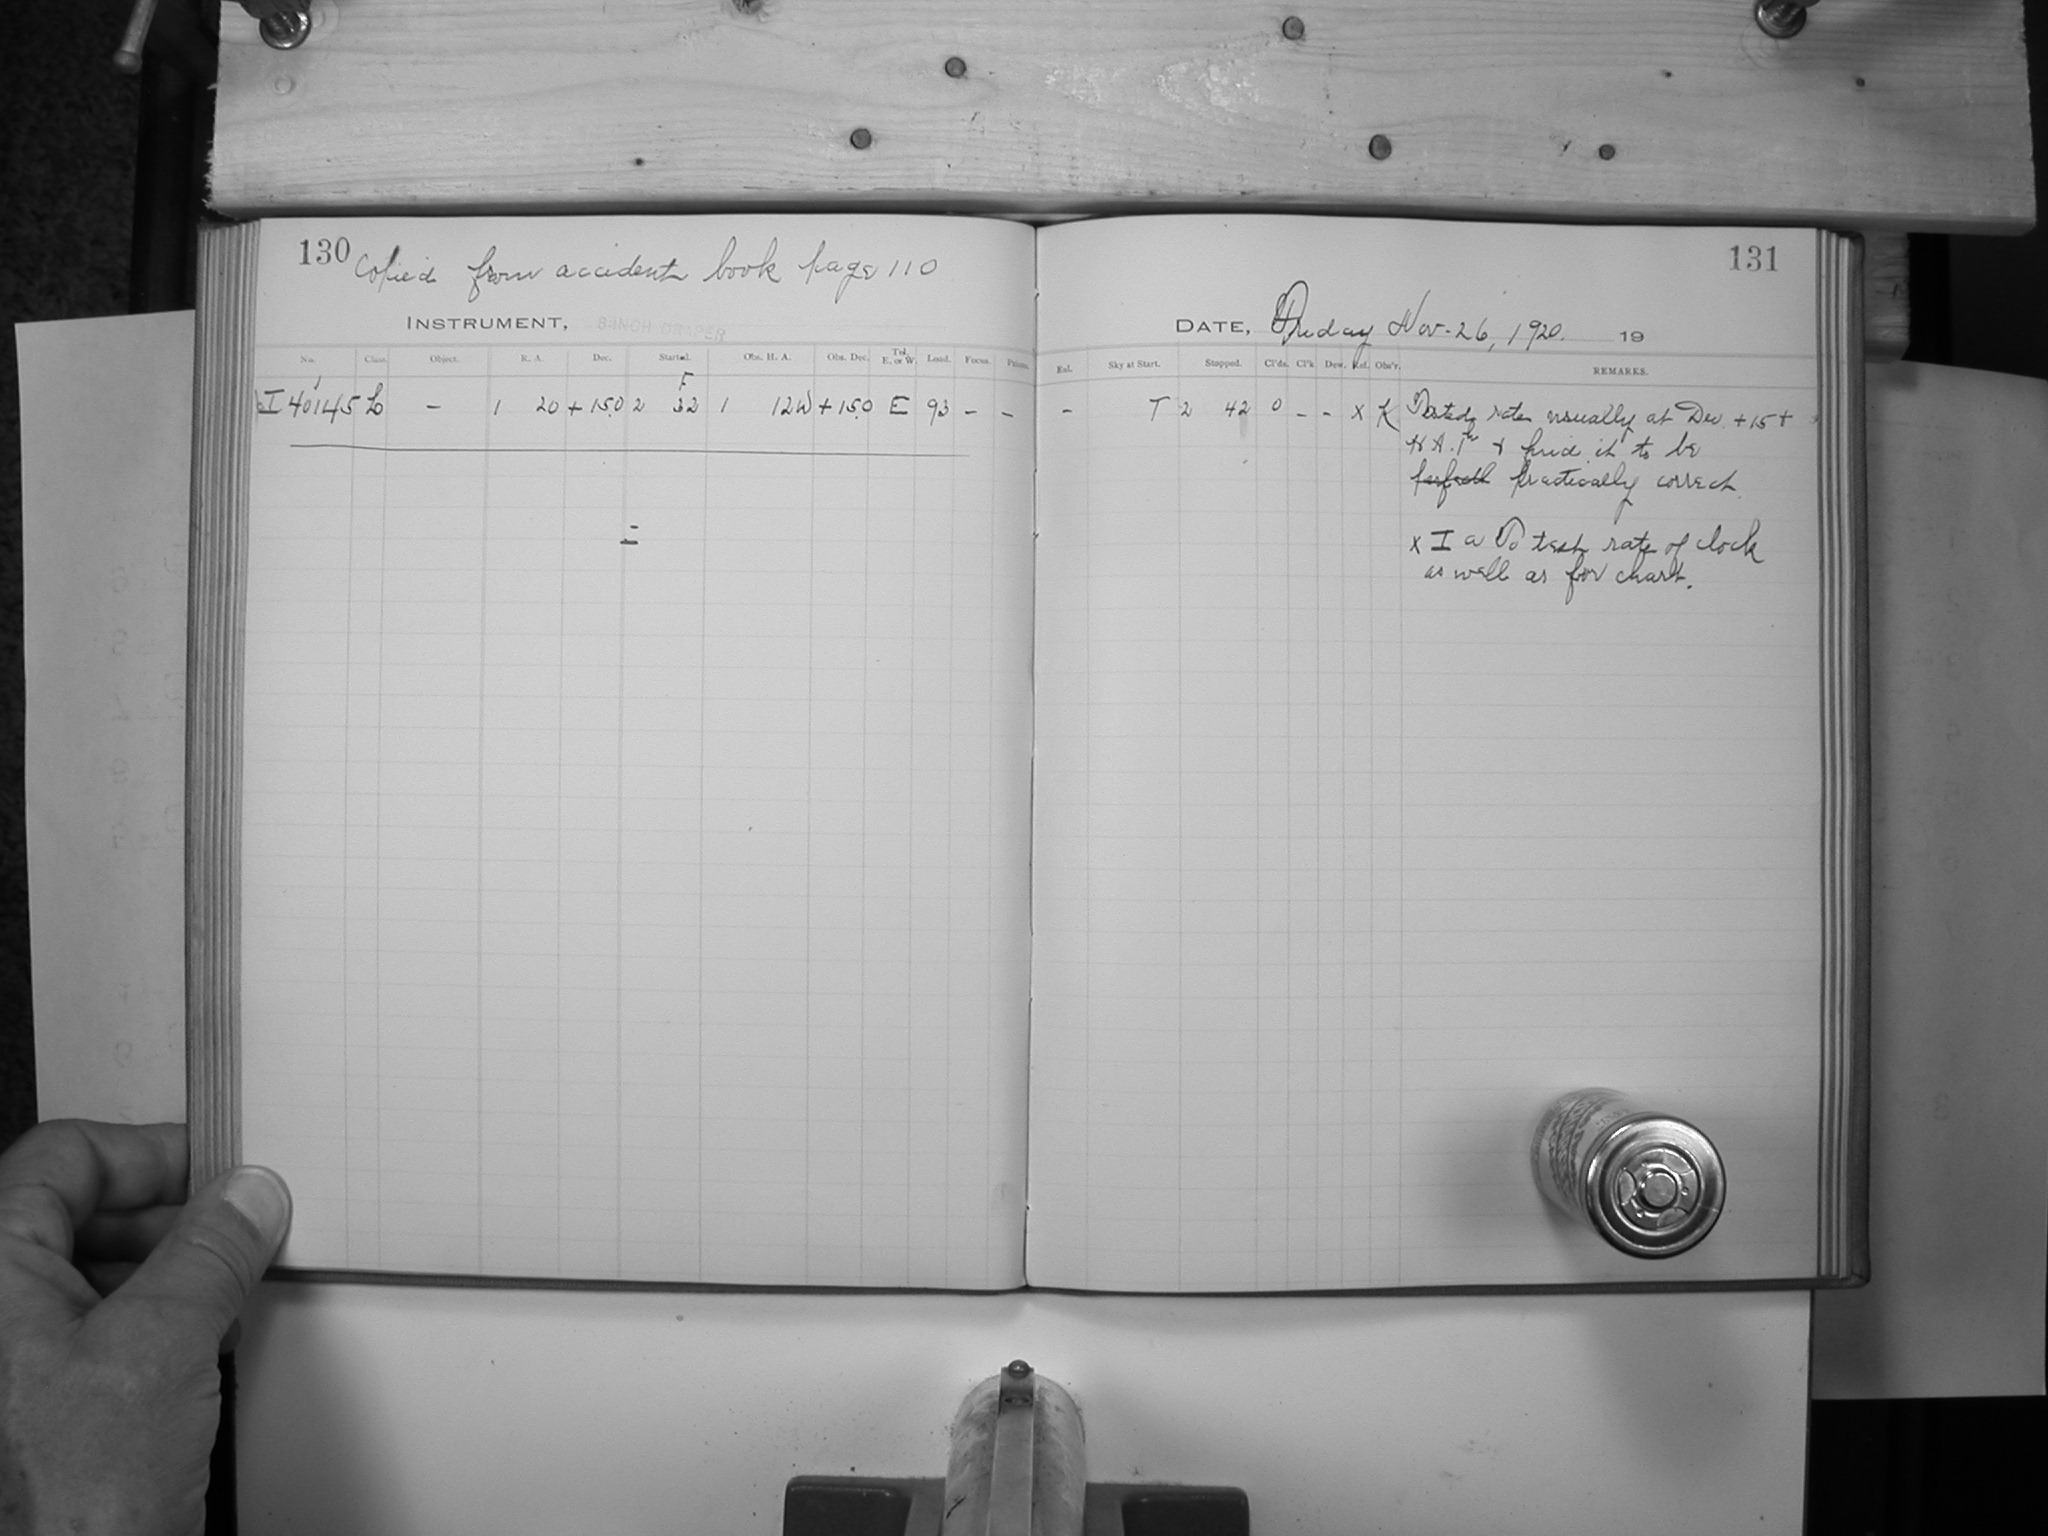 130 Copied from accident book page 110
INSTRUMENT, 8-INCH DRAPER
No. Class. Object. R. A. Dec. Started. Obs. H. A. Obs. Dec. Tel. E. or W. Load. Focus. Prisms.
I 40145 – 1 20 +15.0 2 F 32 1 12W +15.0 E 93 – –
131
DATE, Friday Nov-26, 1920. 19
Exl. Sky at Start. Stopped. Cl'ds. Cl'k Dew. Ref. Obs'r. REMARKS.
– T 2 42 0 – – x K Tested rate usually at Dec. +15 +
H A. 1h & find it to be
practically correct.
x I a To test rate of clock
as well as for chart.